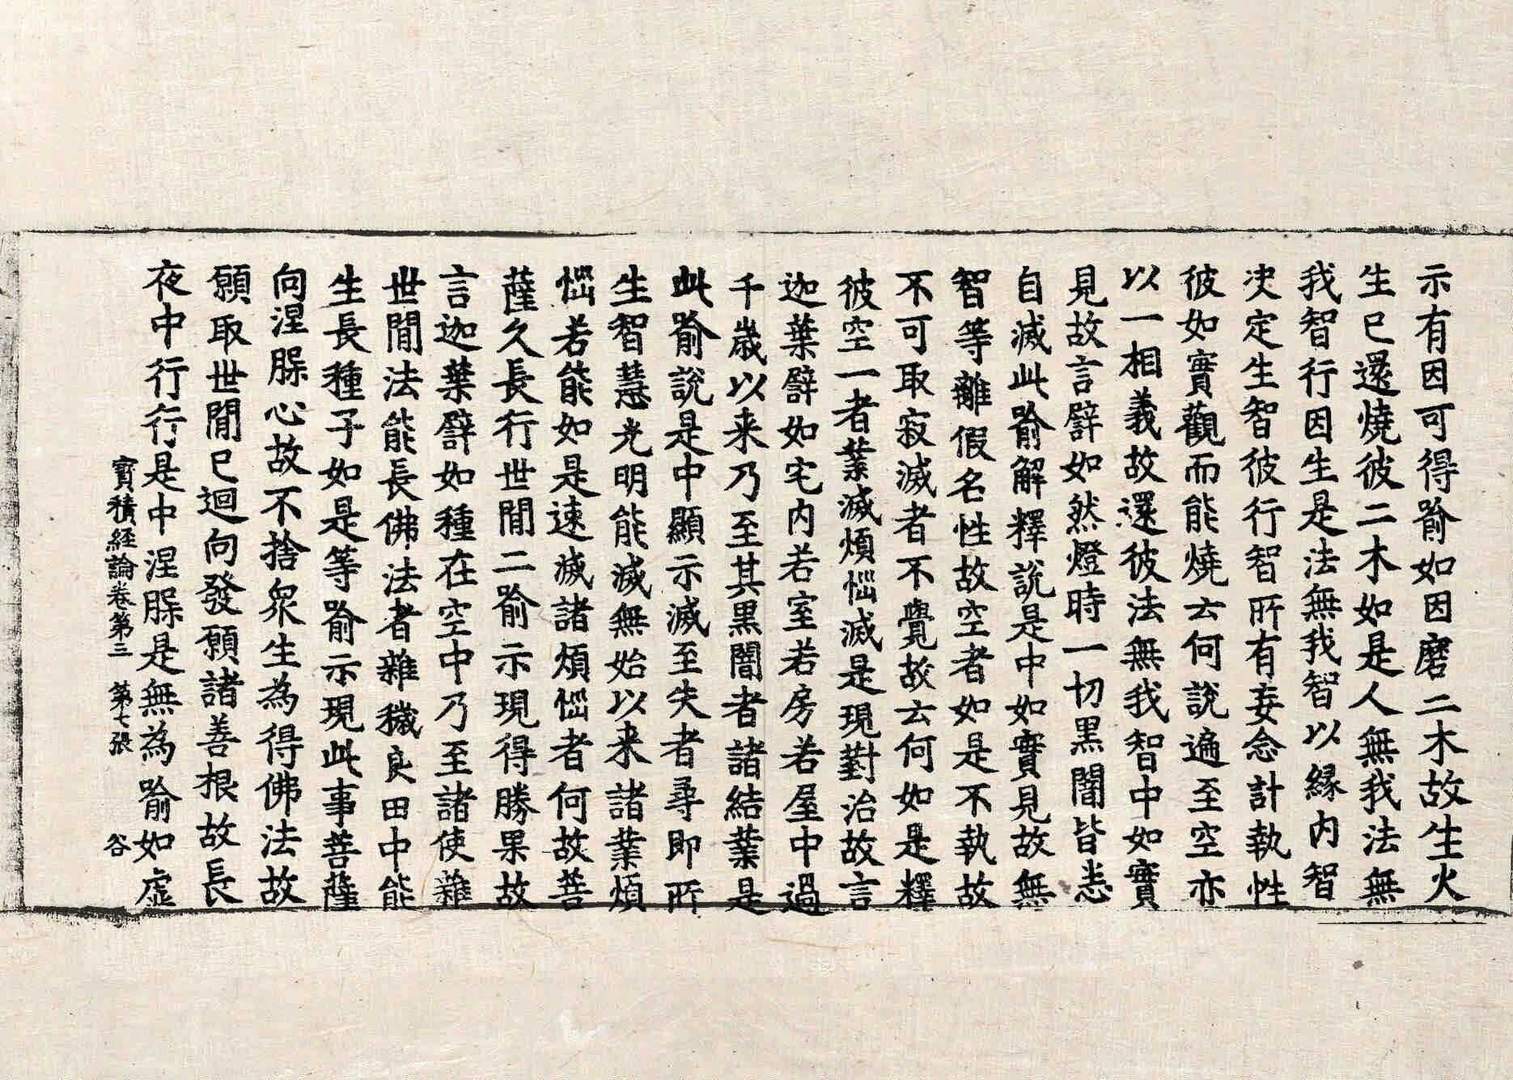 示有因可得喻如因磨二木故生火
生已還燒彼二木如是人無我法無
我智行因生是法無我智以緣內智
決定生智彼行智所有妄念計執性
彼如實觀而能燒去何說遍至空亦
以一相義故還彼法無我智中如實
見故言譬如然燈時一切黑闇皆悉
自滅此喻解釋說是中如實見故無
智等離假名性故空者如是不執故
不可取寂滅者不覺故去何如是釋
彼空一者業滅煩惱滅是現對治故言
迦葉譬如宅內若室若房若屋中過
千歲以来乃至其黑闇者諸結業是
此喻說是中顯示滅至失者尋即所
生智慧光明能滅無始以来諸業煩
惱若能如是速滅諸煩惱者何故菩
薩久長行世間二喻示現得勝果故
言迦葉譬如種在空中乃至諸使雜
世間法能長佛法者雜穢良田中能
生長種子如是等喻示現此事菩薩
向涅槃心故不捨眾生為得佛法故
願取世間已迴向發願諸善根故長
夜中行行是中涅槃是無為喻如虛
寶積經論卷第三 第七張 谷